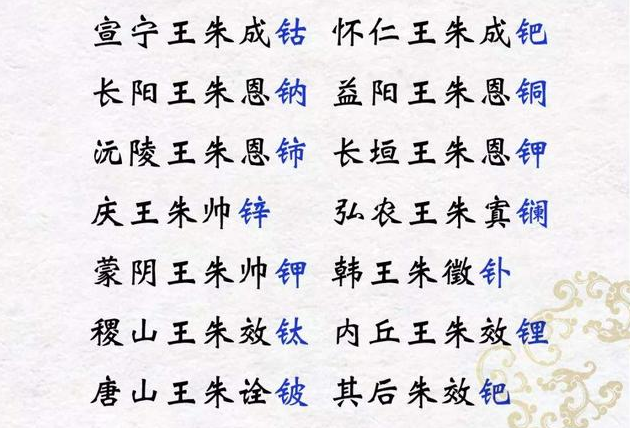 宣宁王朱成钴 怀仁王朱成钯
长阳王朱恩钠 益阳王朱恩铜
沅陵王朱恩铈 长垣王朱恩钾
庆王朱帅锌 弘农王朱寘镧
蒙阴王朱帅钾 韩王朱徵钋
稷山王朱效钛 内丘王朱效锂
唐山王朱诠铍 其后朱效钯